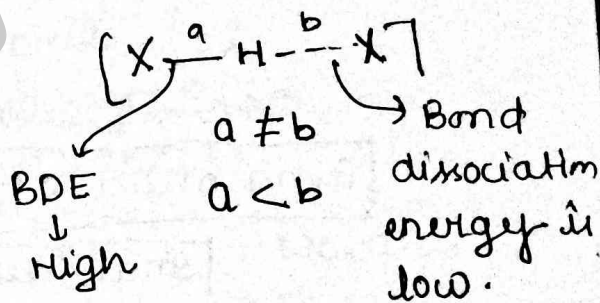 [X —a— H --b-- X]
a ≠ b
a < b
BDE
↓
High
Bond
dissociation
energy is
low.